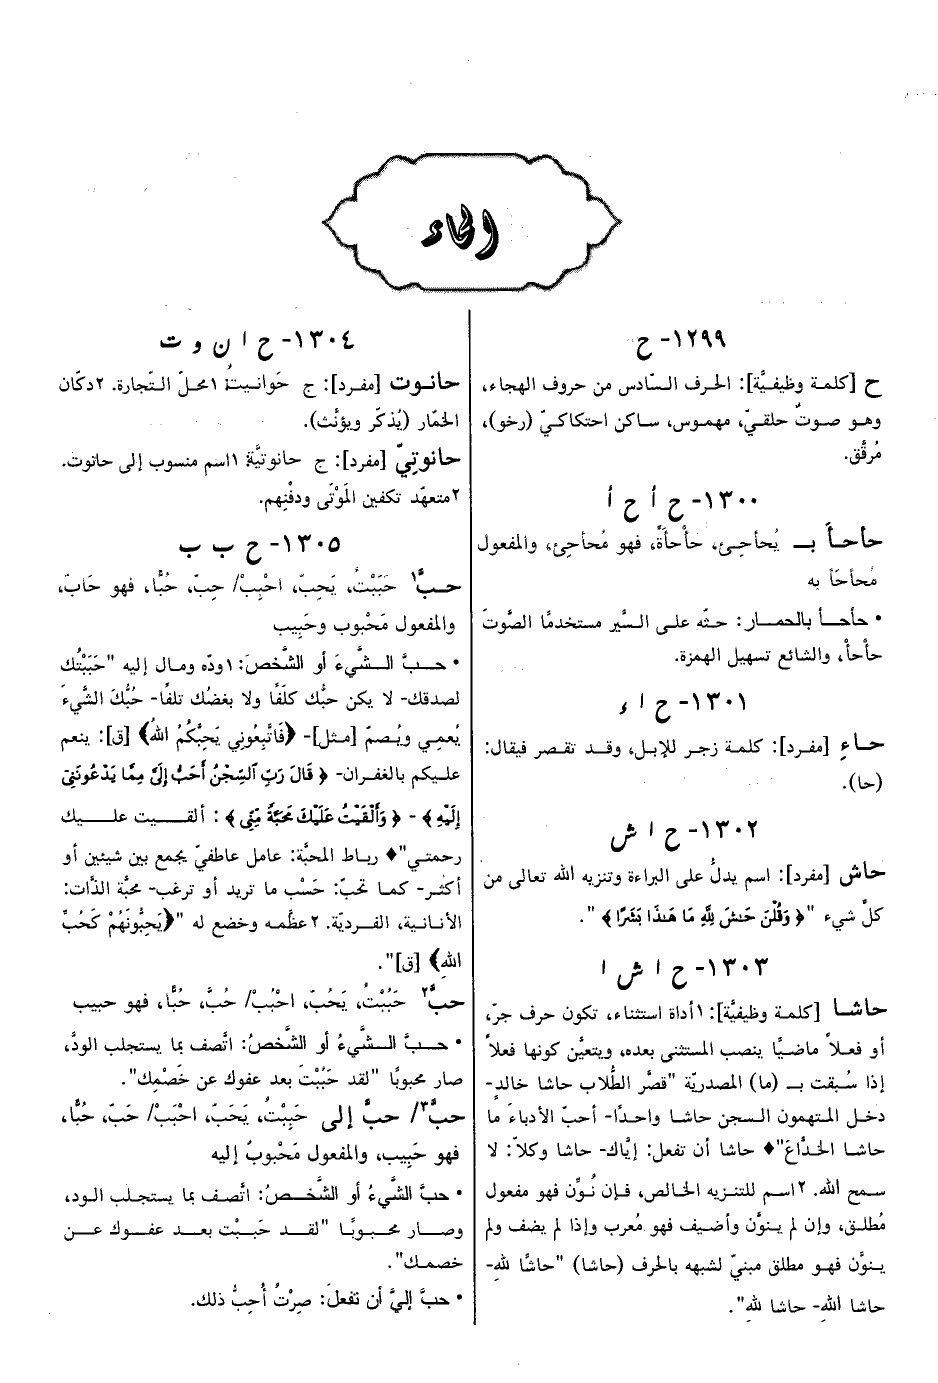 الحاء
١٢٩٩- ح
ح [كلمة وظيفيَّة]: الحرف السّادس من حروف الهجاء،
وهو صوتٌ حلقيّ، مهموس، ساكن احتكاكيّ (رخو)،
مُرقَّق.
١٣٠٠- ح أ ح أ
حأحأَ بـ يُحأحِئ، حَأْحَأَةً، فهو مُحأحِئ، والمفعول
مُحأحَأ به
• حأحأ بالحمار: حثّه على السَّير مستخدمًا الصَّوتَ
حَأحأْ، والشائع تسهيل الهمزة.
١٣٠١- ح ا ء
حاءِ [مفرد]: كلمة زجر للإبل، وقد تقصر فيقال:
(حا).
١٣٠٢- ح ا ش
حاش [مفرد]: اسم يدلُّ على البراءة وتنزيه الله تعالى من
كلِّ شيء "﴿وَقُلْنَ حَٰشَ لِلَّهِ مَا هَٰذَا بَشَرًا﴾".
١٣٠٣- ح ا ش ا
حاشا [كلمة وظيفيَّة]: ١أداة استثناء، تكون حرف جرّ،
أو فعلاً ماضيًا ينصب المستثنى بعده، ويتعيَّن كونها فعلاً
إذا سُبقت بـ (ما) المصدريّة "قصَّر الطُّلاب حاشا خالدٍ-
دخل المتهمون السجن حاشا واحدًا- أحبّ الأدباءَ ما
حاشا الخدَّاعَ"♦ حاشا أن تفعل: إيّاك- حاشا وكلاّ: لا
سمح الله. ٢اسم للتنزيه الخالص، فإن نُوِّن فهو مفعول
مُطلق، وإن لم ينوَّن وأضيف فهو مُعرب وإذا لم يضف ولم
ينوَّن فهو مطلق مبنيّ لشبهه بالحرف (حاشا) "حاشًا للهِ-
حاشا اللهِ- حاشا للهِ".
١٣٠٤- ح ا ن و ت
حانوت [مفرد]: ج حَوانيتُ ١محلّ التّجارة. ٢دكّان
الخمّار (يُذكّر ويؤنّث).
حانوتيّ [مفرد]: ج حانوتيَّة ١اسم منسوب إلى حانوت.
٢متعهّد تكفين المَوْتَى ودفْنِهم.
١٣٠٥- ح ب ب
حبَّ١ حَبَبْتُ، يَحِبّ، احْبِبْ/ حِبّ، حُبًّا، فهو حَابّ،
والمفعول مَحْبُوب وحَبِيب
• حبَّ الشَّيءَ أو الشَّخصَ: ١ودّه ومال إليه "حَبَبْتُك
لصدقك- لا يكن حبُّك كلَفًا ولا بغضُك تلفًا- حُبُّكَ الشَّيءَ
يُعمِي ويُصمّ [مثل]- ﴿فَاتَّبِعُونِي يَحِبَّكُمُ اللهُ﴾ [ق]: ينعم
عليكم بالغفران- ﴿قَالَ رَبِّ ٱلسِّجْنُ أَحَبُّ إِلَيَّ مِمَّا يَدْعُونَنِي
إِلَيْهِ﴾- ﴿وَأَلْقَيْتُ عَلَيْكَ مَحَبَّةً مِّنِّي﴾: ألقيت عليك
رحمتي"♦ رباط المحبَّة: عامل عاطفيّ يجمع بين شيئين أو
أكثر- كما تحبّ: حَسْب ما تريد أو ترغب- محبَّة الذّات:
الأنانية، الفرديّة. ٢عظّمه وخضع له "﴿يَحِبُّونَهُمْ كَحُبِّ
اللهِ﴾ [ق]".
حبَّ٢ حَبُبْتُ، يَحُبّ، احْبُبْ/ حُبَّ، حُبًّا، فهو حبيب
• حبَّ الشَّيءُ أو الشَّخصُ: اتَّصف بما يستجلب الودّ،
صار محبوبًا "لقد حَبُبْتَ بعد عفوك عن خَصْمِك".
حبَّ٣/ حبَّ إلى حَبِبْتُ، يَحَبّ، احْبَبْ/ حَبّ، حُبًّا،
فهو حَبِيب، والمفعول مَحْبُوبٌ إليه
• حبَّ الشَّيءُ أو الشَّخصُ: اتَّصف بما يستجلب الود،
وصار محبوبًا "لقد حَبِبْت بعد عفوك عن
خصمك".
• حبَّ إليَّ أن تفعلَ: صِرْتُ أُحِبُّ ذلك.